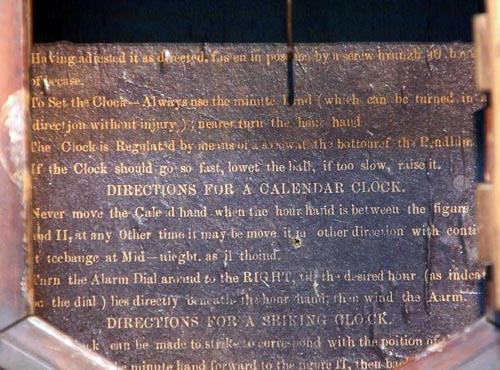 Having adjested it as directed, fas en in posi on by a screw
of becase.
To Set the Clock—Always use the minute hand (which can be turned in a
direction without injury); nearer turn the hour hand
The Clock is Regulated by means of a screw at the bottour of the Pendlum
If the Clock should go so fast, lowet the ball, if too slow, raise it.
DIRECTIONS FOR A CALENDAR CLOCK.
Never move the Cale d hand when the hour hand is between the figure
and II, at any Other time it may be move it in other direction with conti
t icebange at Mid—nieght. as il thoind.
Turn the Alarm Dial around to the RIGHT, till the desired hour (as indcat
on the dial) lies directly beneath the hour hand; then wind the Aarm.
DIRECTIONS FOR A SRIKING CLOCK.
ck can be made to strike to correspond with the poition of t
he minute hand forward to the figure II, then back